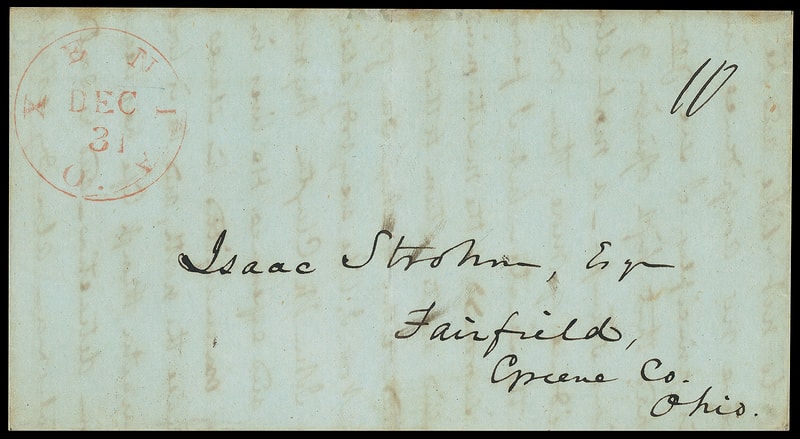 XENIA
DEC
31
O.
10
Isaac Strohm, Esq
Fairfield,
Greene Co.
Ohio.